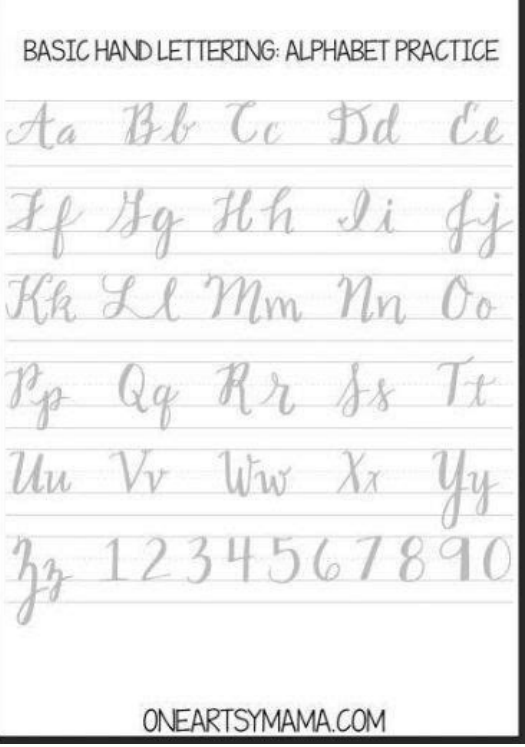 BASIC HAND LETTERING: ALPHABET PRACTICE
Aa Bb Cc Dd Ee
Ff Gg Hh Ii Jj
Kk Ll Mm Nn Oo
Pp Qq Rr Ss Tt
Uu Vv Ww Xx Yy
Zz 1234567890
ONEARTSYMAMA.COM